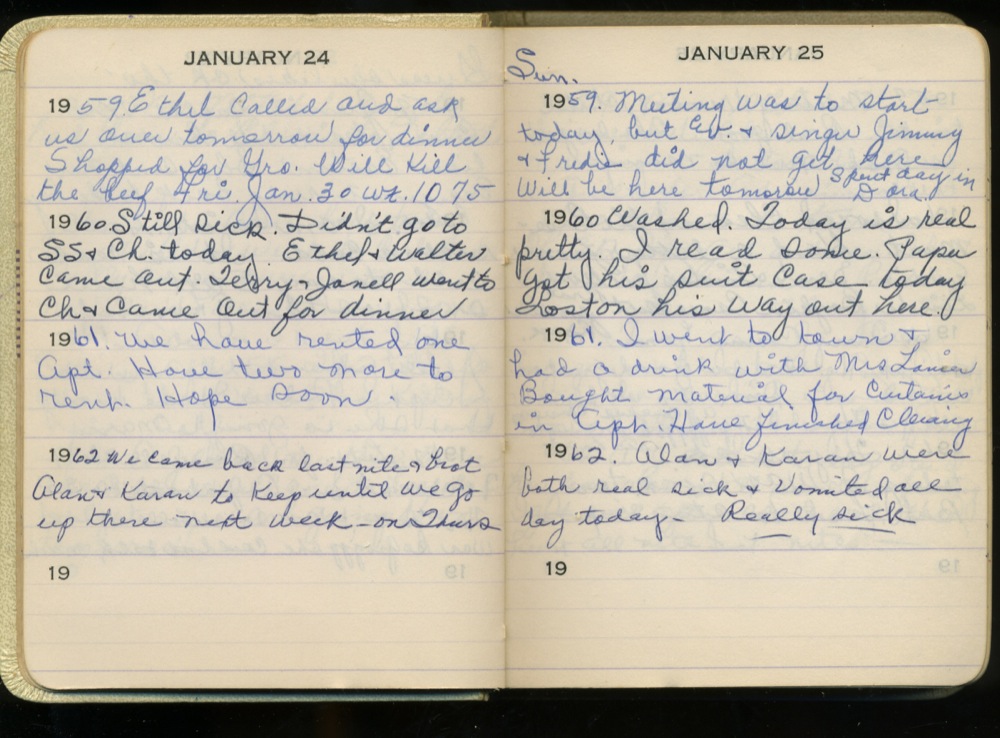 JANUARY 24
1959. Ethel Called and ask
us over tomorrow for dinner
Shopped for Gro. Will Kill
the beef Fri. Jan. 30 wt. 1075
1960. Still sick. Didn't go to
SS & Ch. today. Ethel & Walter
came out. Terry & Janell went to
Ch & Came Out for dinner
1961. We have rented one
apt. Have two more to
rent. Hope soon.
1962 We came back last nite & brot
Alan & Karan to Keep until we go
up there next week - on Thurs
19
JANUARY 25
Sun.
1959. Meeting was to start
today, but Ev. & singer Jimmy
& Freda did not get here
Will be here tomorow Spent day in
Dora.
1960 Washed. Today is real
pretty. I read some. Papa
got his suit Case today
Loston his way out here.
1961. I went to town &
had a drink with Mrs Lanier
Bought material for Curtains
in Apt. Have finished Cleaning
1962. Alan & Karan were
both real sick & Vomited all
day today - Really sick
19